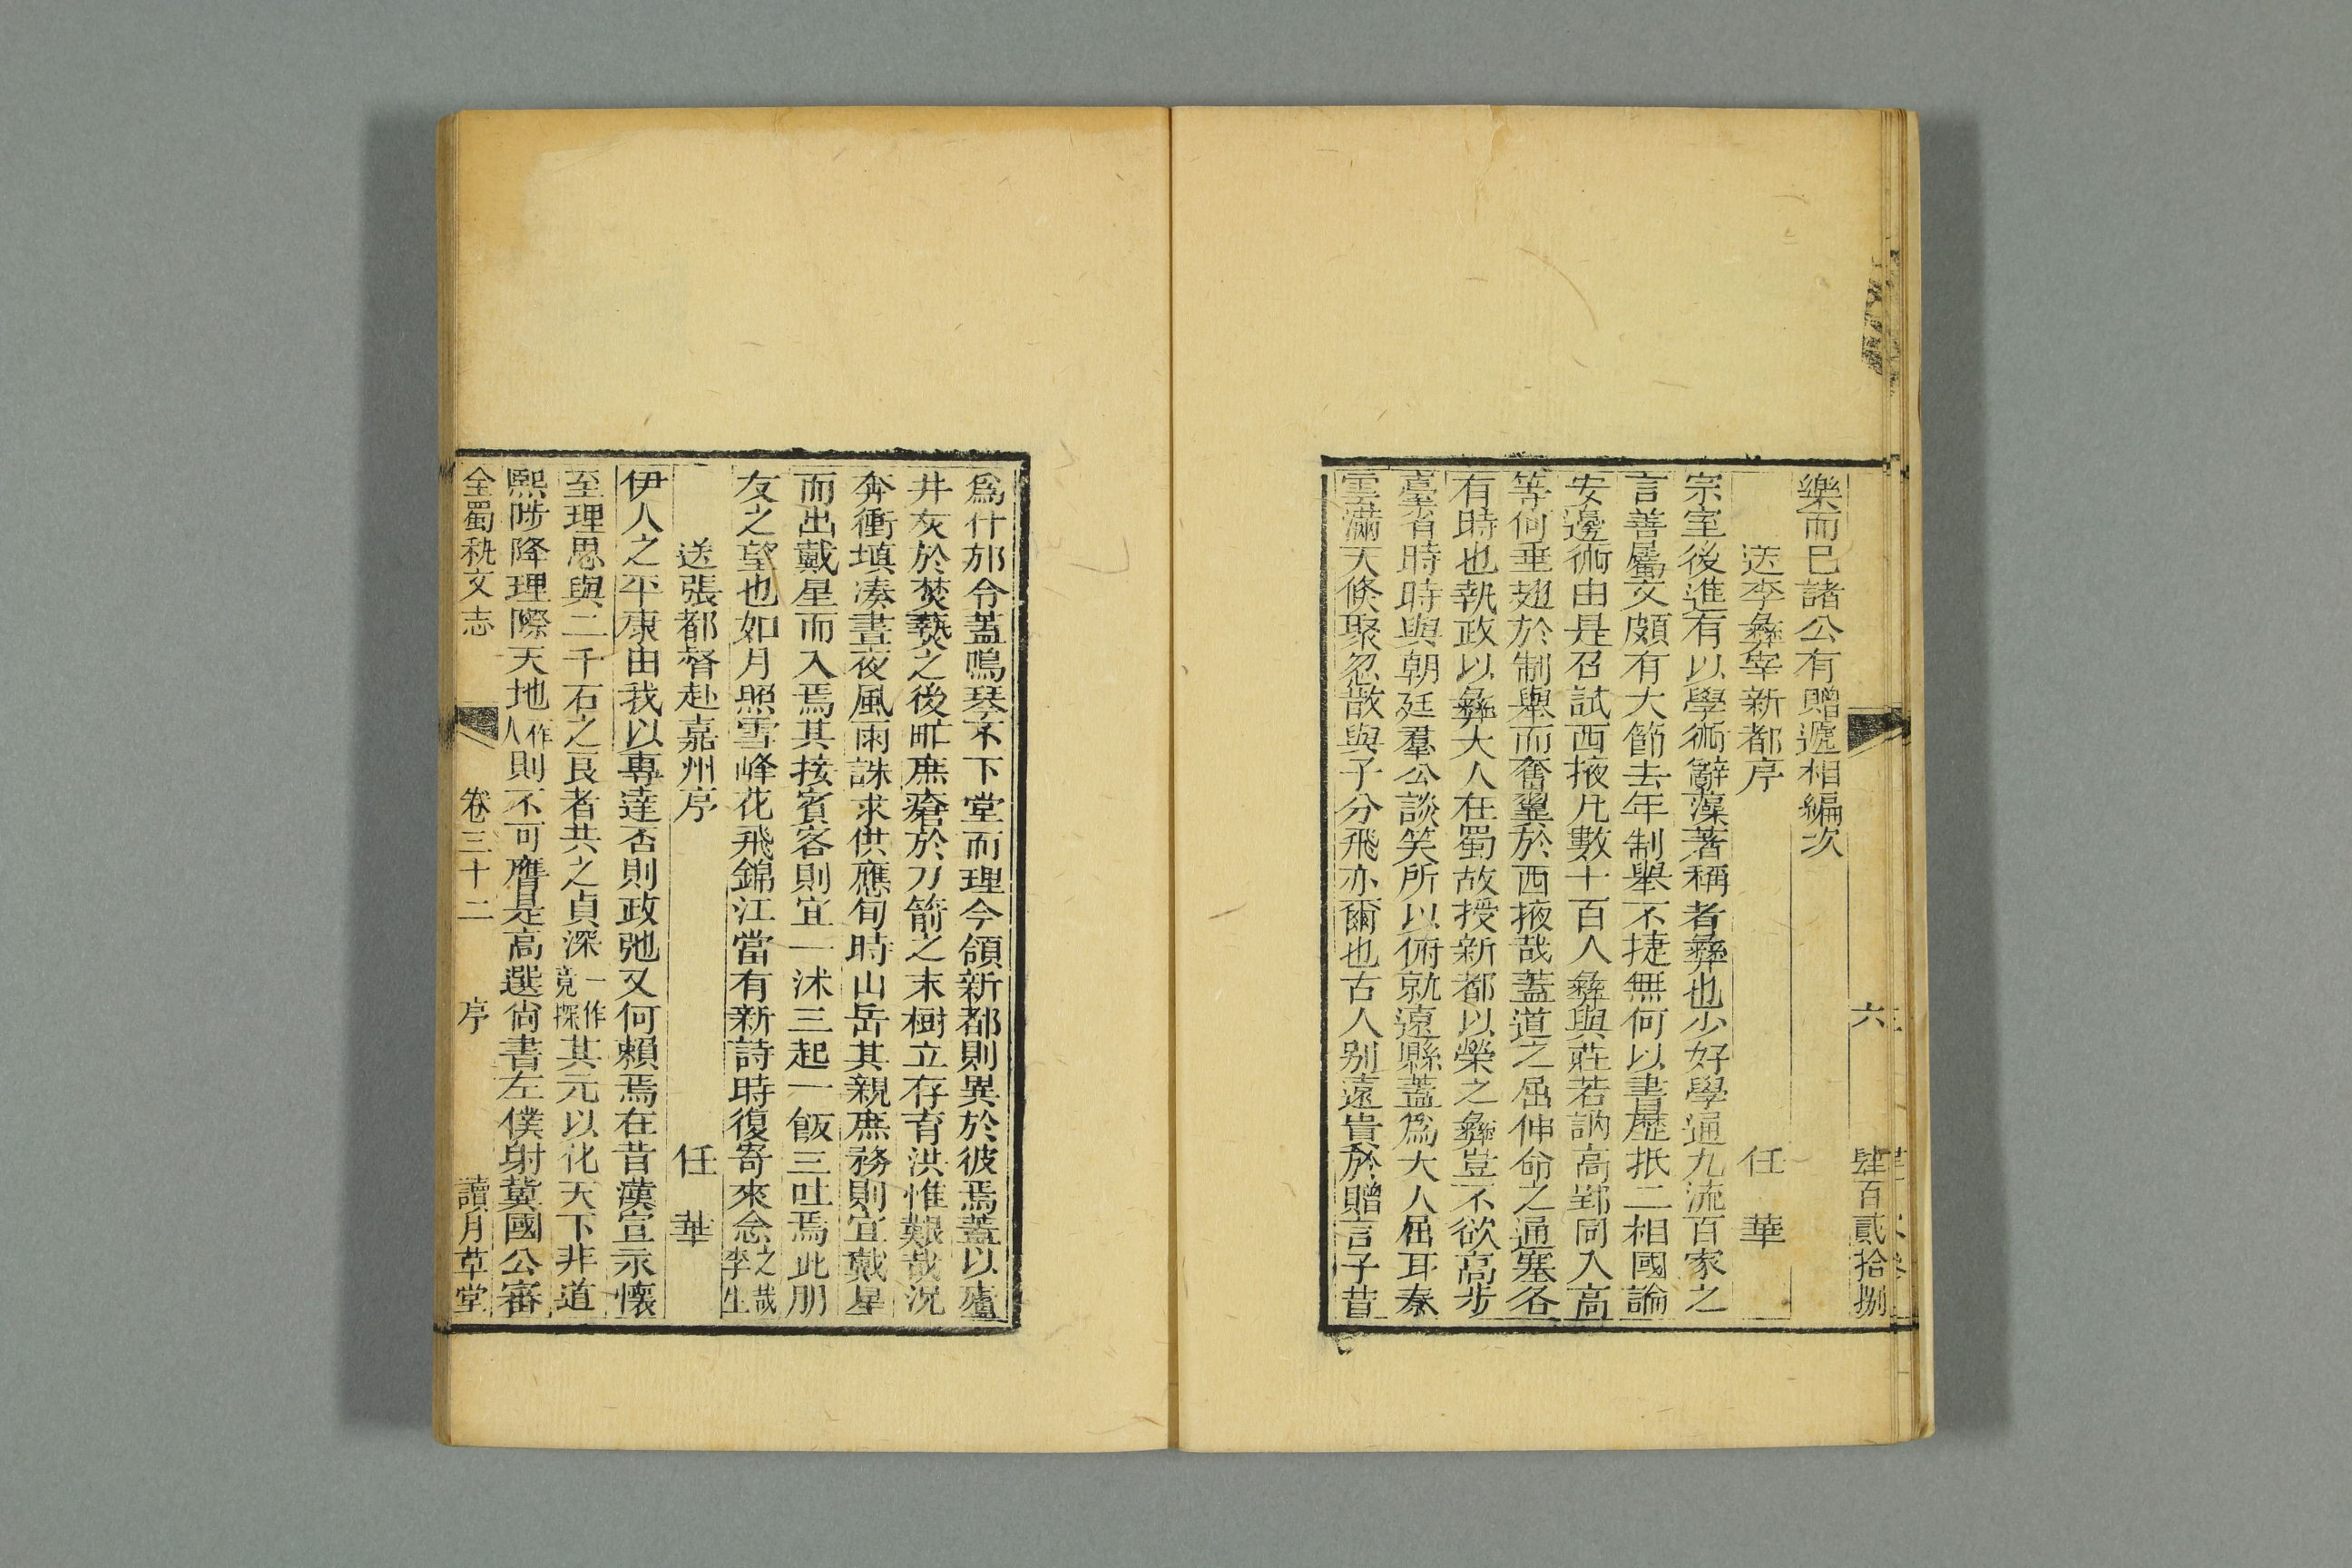 六
肆百貳拾捌
樂而已諸公有贈遞相編次
送李彝宰新都序
任華
宗室後進有以學術辭藻著稱者彝也少好學通九流百家之
言善屬文頗有大節去年制舉不捷無何以書歷抵二相國論
安邊術由是召試西掖凡數十百人彝與莊若訥高郢同入高
等何垂翅於制舉而奮翼於西掖哉蓋道之屈伸命之通塞各
有時也執政以彝大人在蜀故授新都以榮之彝豈不欲高步
臺省時時與朝廷羣公談笑所以俯就遠縣蓋爲大人屈耳秦
雲滿天倐聚忽散與子分飛亦爾也古人别遠貴於贈言子昔
爲什邡令蓋鳴琴不下堂而理今領新都則異於彼焉蓋以廬
井灰於焚爇之後甿庶瘡於刀箭之末樹立存育洪惟艱哉況
奔衝填湊晝夜風雨誅求供應旬時山岳其親庶務則宜戴星
而出戴星而入焉其接賓客則宜一沐三起一飯三吐焉此朋
友之望也如月照雪峰花飛錦江當有新詩時復寄來念之哉李生
送張都督赴嘉州序
任華
伊人之平康由我以專達否則政弛又何賴焉在昔漢宣示懷
至理思與二千石之良者共之貞深一作竟探其元以化天下非道
熙陟降理際天地作人則不可膺是高選尙書左僕射冀國公審
全蜀秇文志 卷三十二 序 讀月草堂